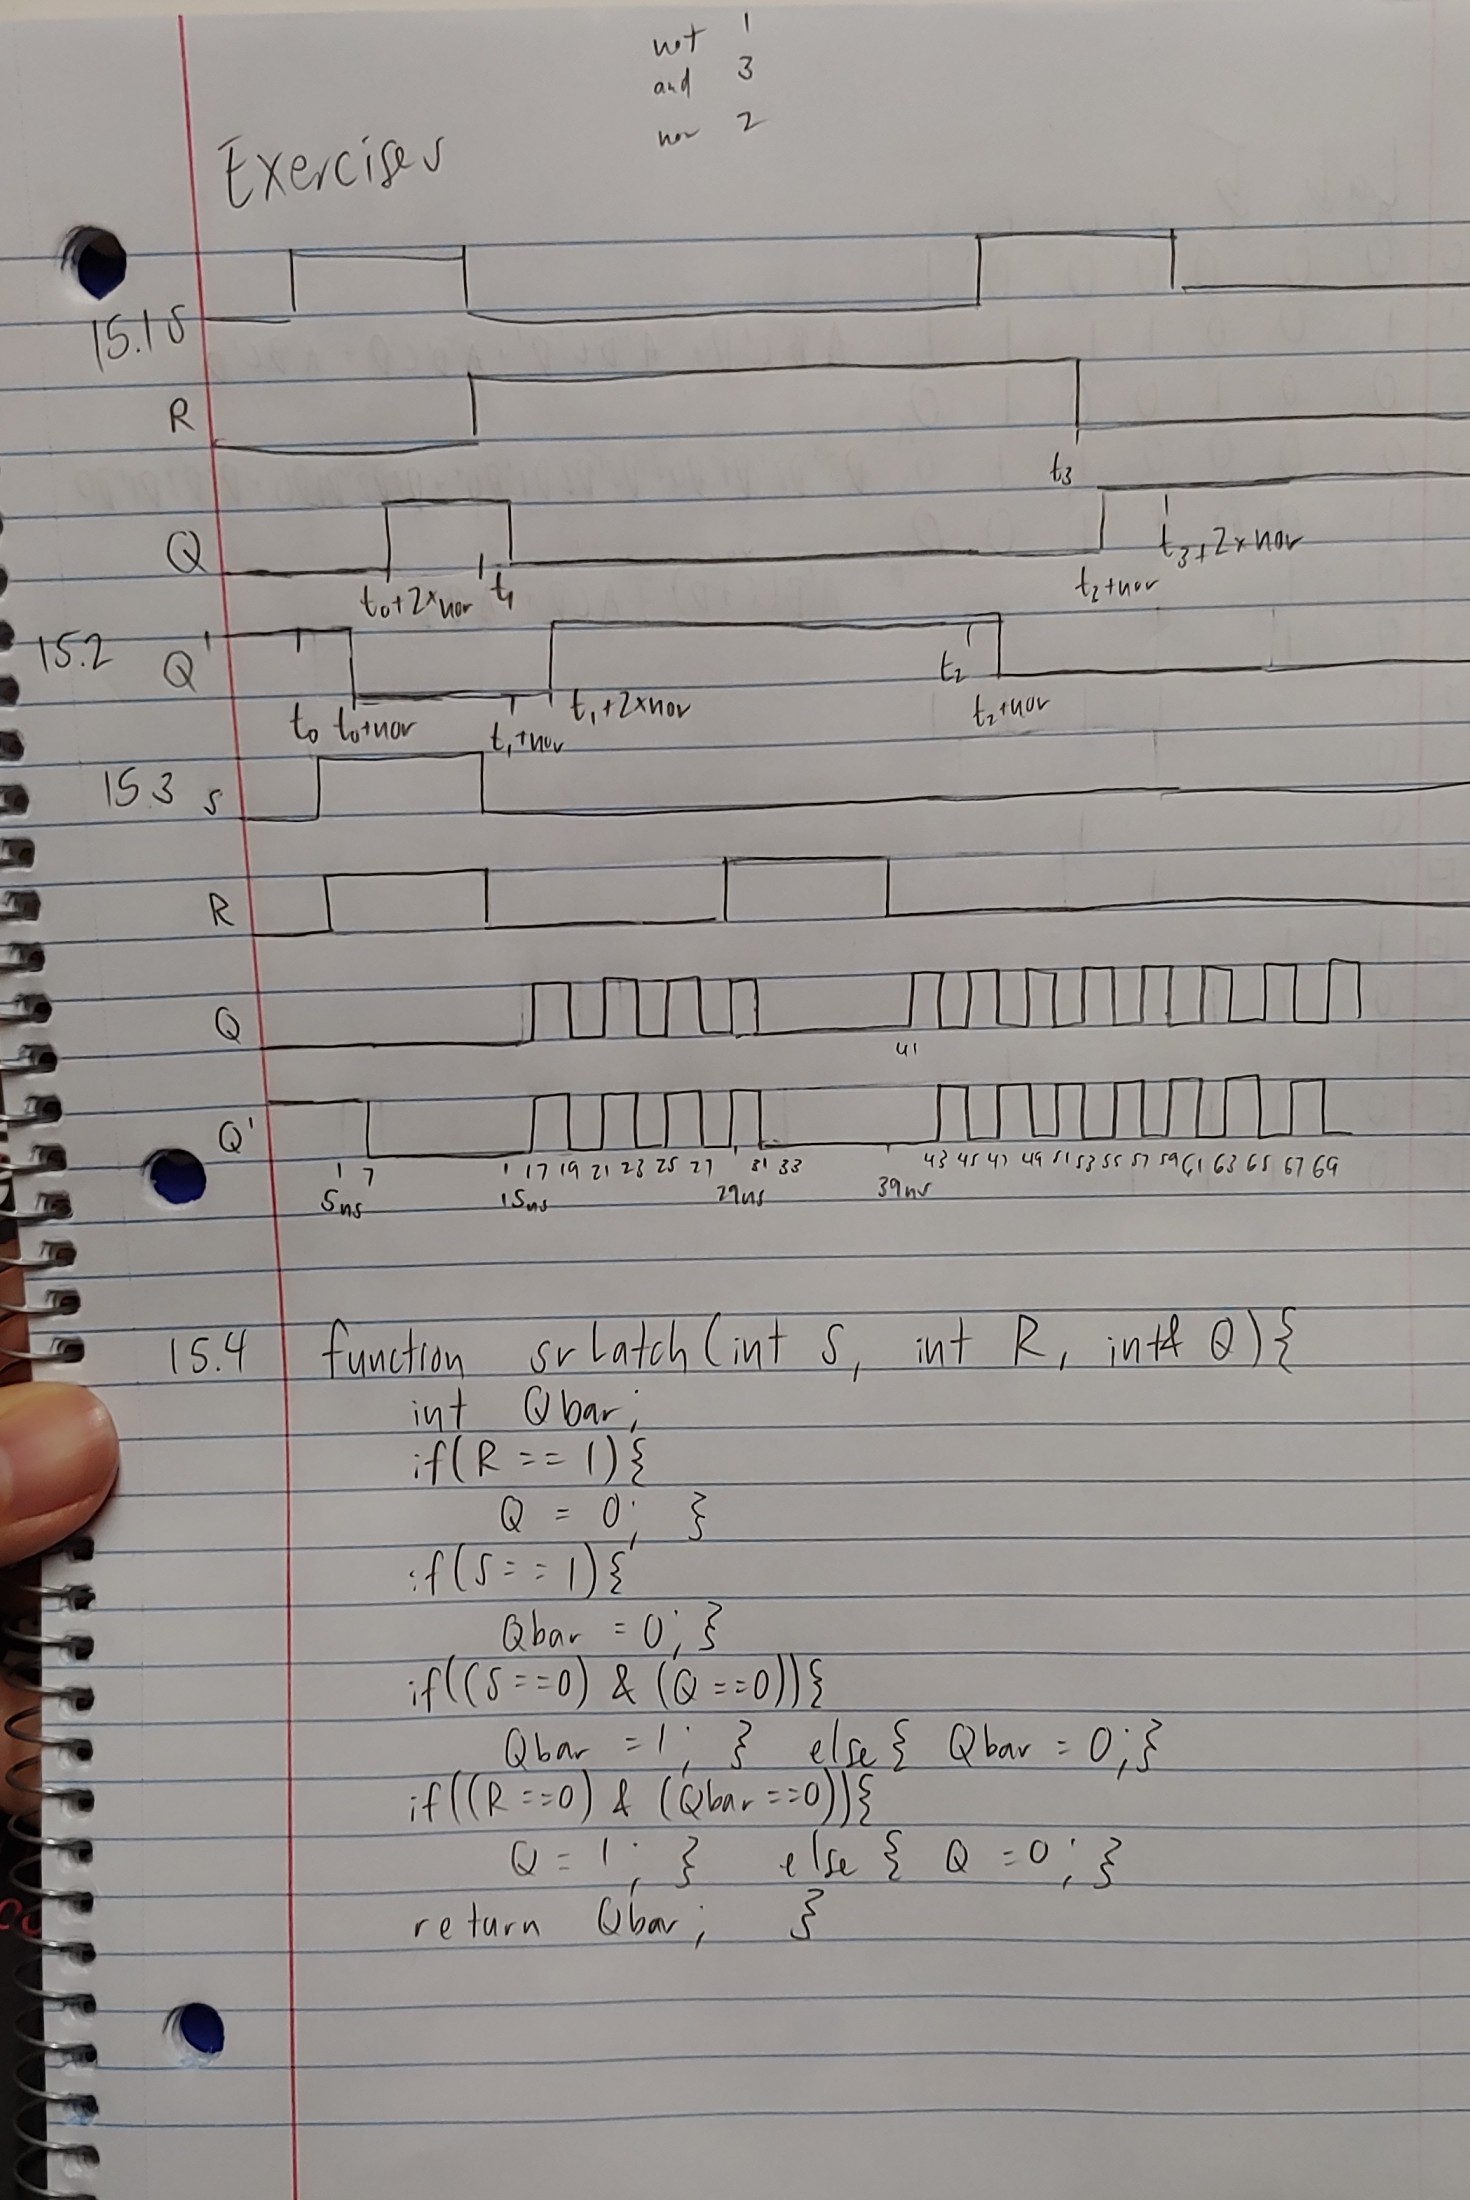 not 1
and 3
nor 2
Exercises
15.1 S
R
t3
Q
t0+2×nor t1 t2+nor t3+2×nor
15.2 Q'
t0 t0+nor t1+nor t1+2×nor t2 t2+nor
15.3 S
R
Q
41
Q'
7 17 19 21 23 25 27 31 33 43 45 47 49 51 53 55 57 59 61 63 65 67 69
5ns 15ns 29ns 39ns
15.4 function srLatch(int S, int R, int& Q){
int Qbar;
if(R == 1){
Q = 0; }
if(S == 1){
Qbar = 0; }
if((S==0) & (Q==0)){
Qbar = 1; } else{ Qbar = 0; }
if((R==0) & (Qbar==0)){
Q = 1; } else { Q = 0; }
return Qbar; }